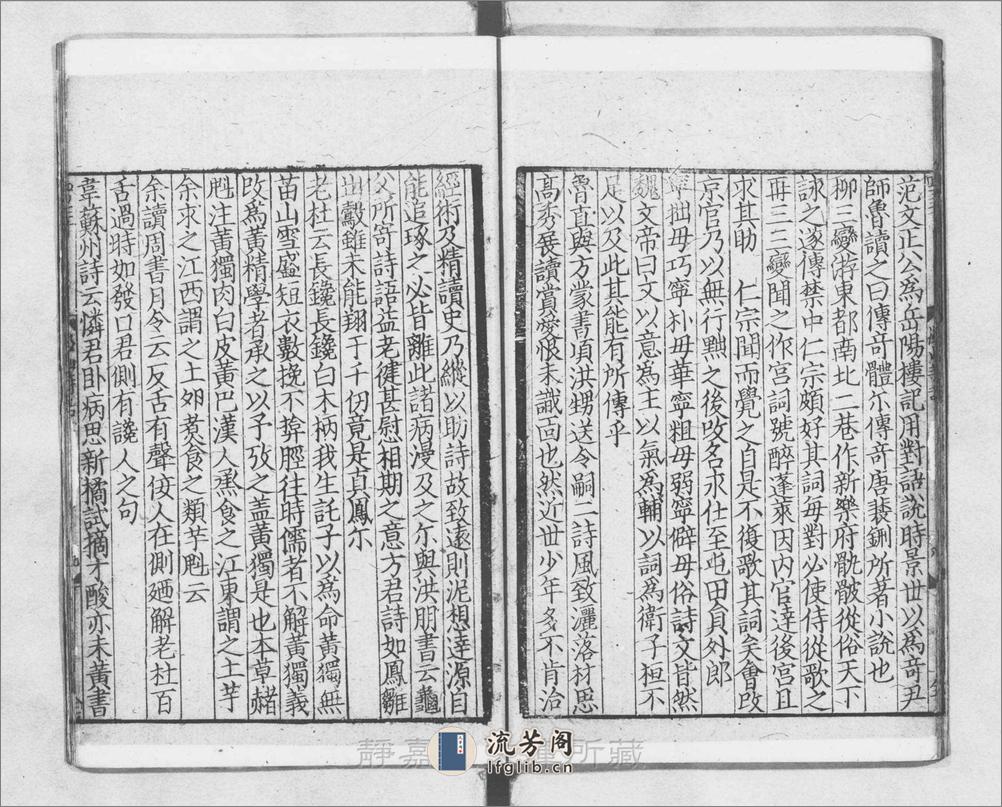 范文正公為岳陽樓記用對語說時景世以為奇尹
師魯讀之曰傳奇體尓傳奇唐裴鉶所著小說也
柳三變游東都南北二巷作新樂府骫骳從俗天下
詠之遂傳禁中仁宗頗好其詞每對必使侍從歌之
再三三變聞之作宮詞號醉蓬萊因內官達後宮且
求其助　仁宗聞而覺之自是不復歌其詞矣會改
京官乃以無行黜之後改名永仕至屯田員外郎
寧拙毋巧寧朴毋華寧粗毋弱寧僻毋俗詩文皆然
魏文帝曰文以意為主以氣為輔以詞為衛子桓不
足以及此其能有所傳乎
魯直與方蒙書頃洪甥送令嗣二詩風致灑落材思
高秀展讀賞愛恨未識面也然近世少年多不肯治
經術及精讀史乃縱以助詩故致遠則泥想達源自
能追琢之必皆離此諸病漫及之尓與洪朋書云龜
父所寄詩語益老健甚慰相期之意方君詩如鳳雛
出鷇雖未能翔于千仞竟是真鳳尓
老杜云長鑱長鑱白木柄我生託子以為命黃獨無
苗山雪盛短衣數挽不揜脛往時儒者不解黃獨義
改為黃精學者承之以予攷之蓋黃獨是也本草赭
魁注黃獨肉白皮黃巴漢人烝食之江東謂之土芋
余求之江西謂之土卵煑食之類芋魁云
余讀周書月令云反舌有聲佞人在側廼解老杜百
舌過時如發口君側有讒人之句
韋蘇州詩云憐君卧病思新橘試摘才酸亦未黃書
流芳阁
lfglib.cn
靜嘉 所藏